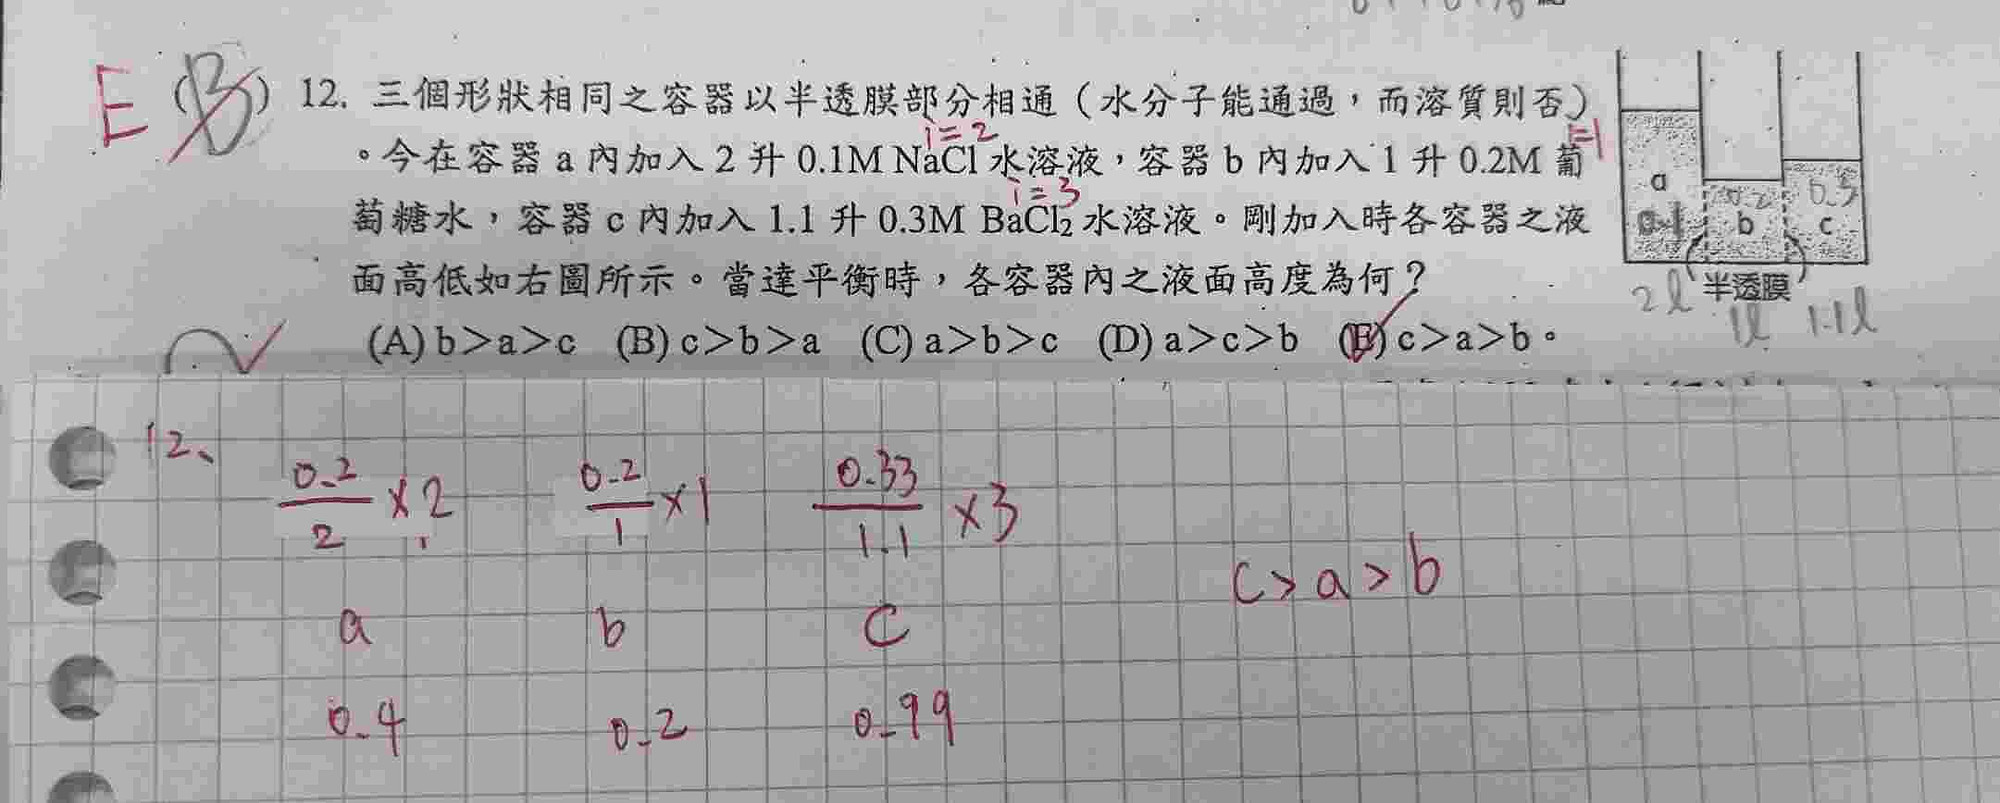 E (B) 12. 三個形狀相同之容器以半透膜部分相通（水分子能通過，而溶質則否）
i=2 i=1
。今在容器 a 內加入 2 升 0.1M NaCl 水溶液，容器 b 內加入 1 升 0.2M 葡
i=3
萄糖水，容器 c 內加入 1.1 升 0.3M BaCl₂ 水溶液。剛加入時各容器之液
面高低如右圖所示。當達平衡時，各容器內之液面高度為何？
(A) b＞a＞c (B) c＞b＞a (C) a＞b＞c (D) a＞c＞b (E) c＞a＞b。
a 0.2 0.3
0.1 b c
半透膜
2l 1l 1.1l
12、
0.2/2 ×2 0.2/1 ×1 0.33/1.1 ×3
c>a>b
a b c
0.4 0.2 0.99